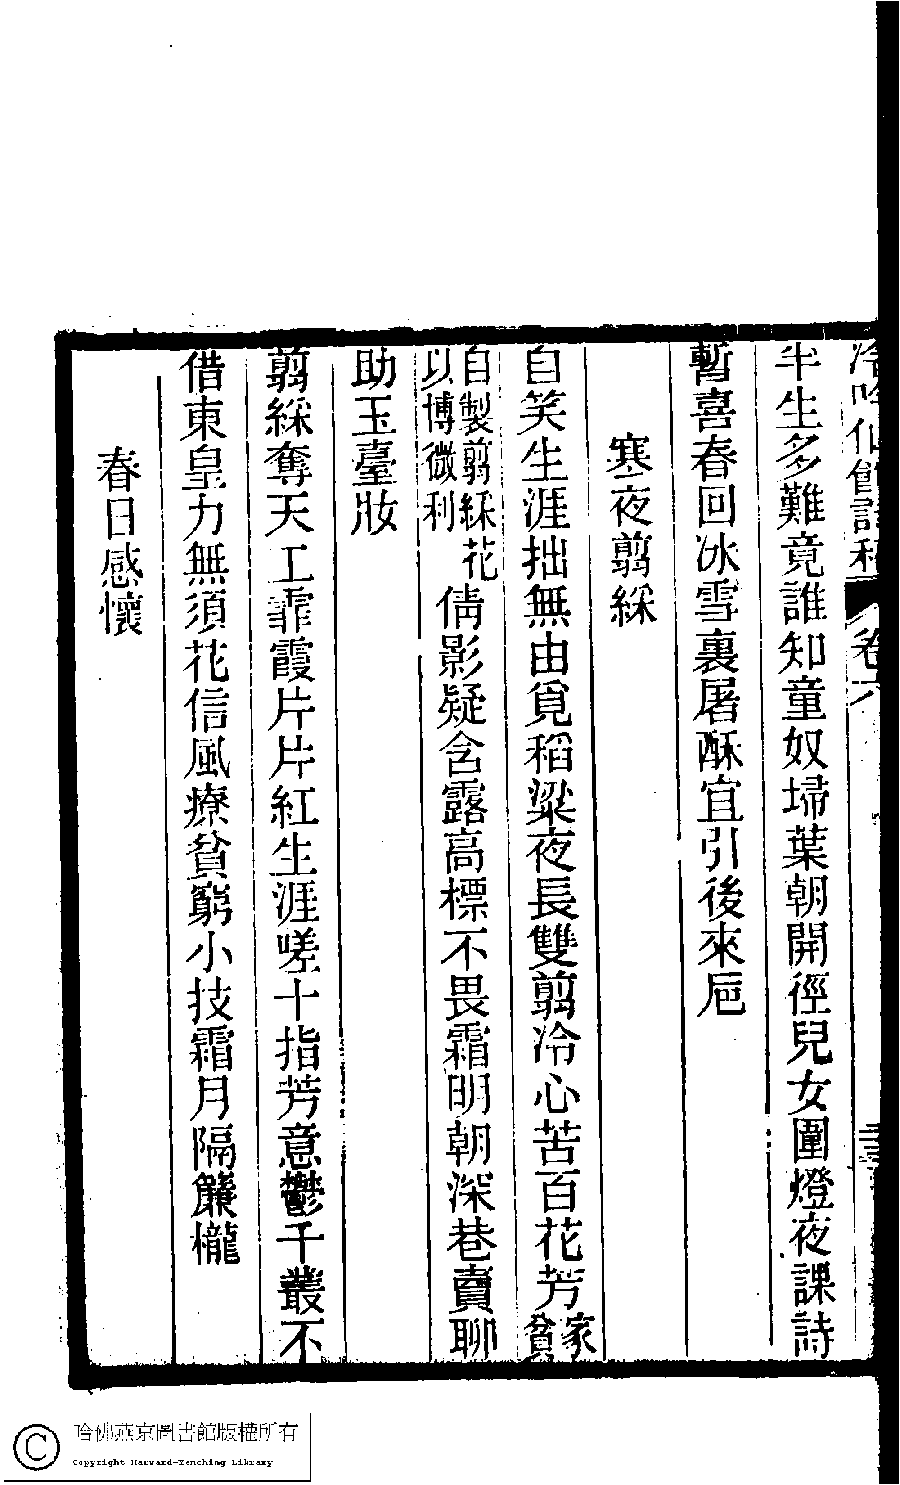 冷吟仙館詩稿
卷六
半生多難竟誰知童奴埽葉朝開徑兒女圍燈夜課詩
暫喜春回冰雪裏屠酥宜引後來卮
寒夜翦綵
自笑生涯拙無由覓稻粱夜長雙翦冷心苦百花芳家貧
自製翦綵花以博微利倩影疑含露高標不畏霜明朝深巷賣聊
助玉臺妝
翦綵奪天工霏霞片片紅生涯嗟十指芳意鬱千叢不
借東皇力無須花信風療貧窮小技霜月隔簾櫳
春日感懷
哈佛燕京圖書館版權所有
Copyright Harvard-Yenching Library